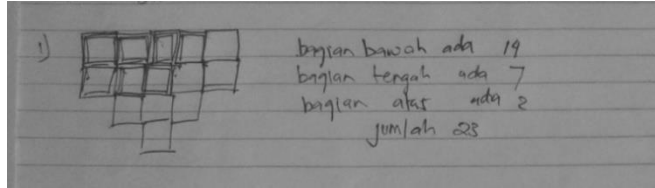 1) bagian bawah ada 14
bagian tengah ada 7
bagian atas ada 2
jumlah 23